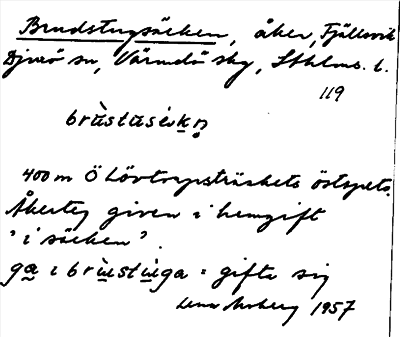 Brudstugsäcken, åker, Fjällsvik
Djurö sn, Värmdö skg, Sthlms. l.
119
brùstusèkn̥
400 m Ö Lövtropsträskets östspets.
Åkerteg given i hemgift
"i säcken".
ga i brùstùga = gifta sig
1957